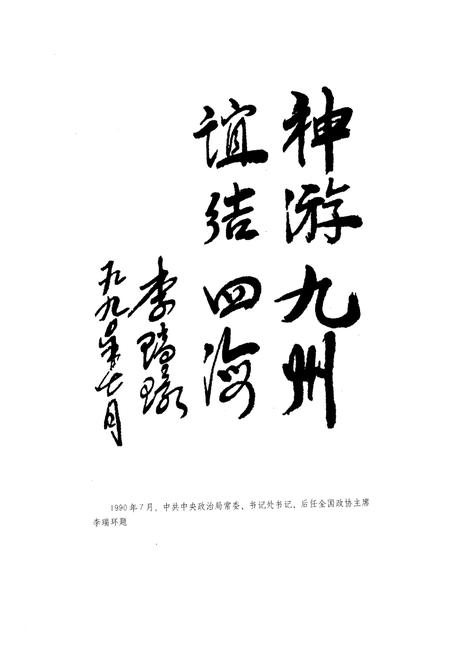 神游九州
谊结四海
李瑞环
一九九〇年七月
1990年7月，中共中央政治局常委、书记处书记、后任全国政协主席
李瑞环题